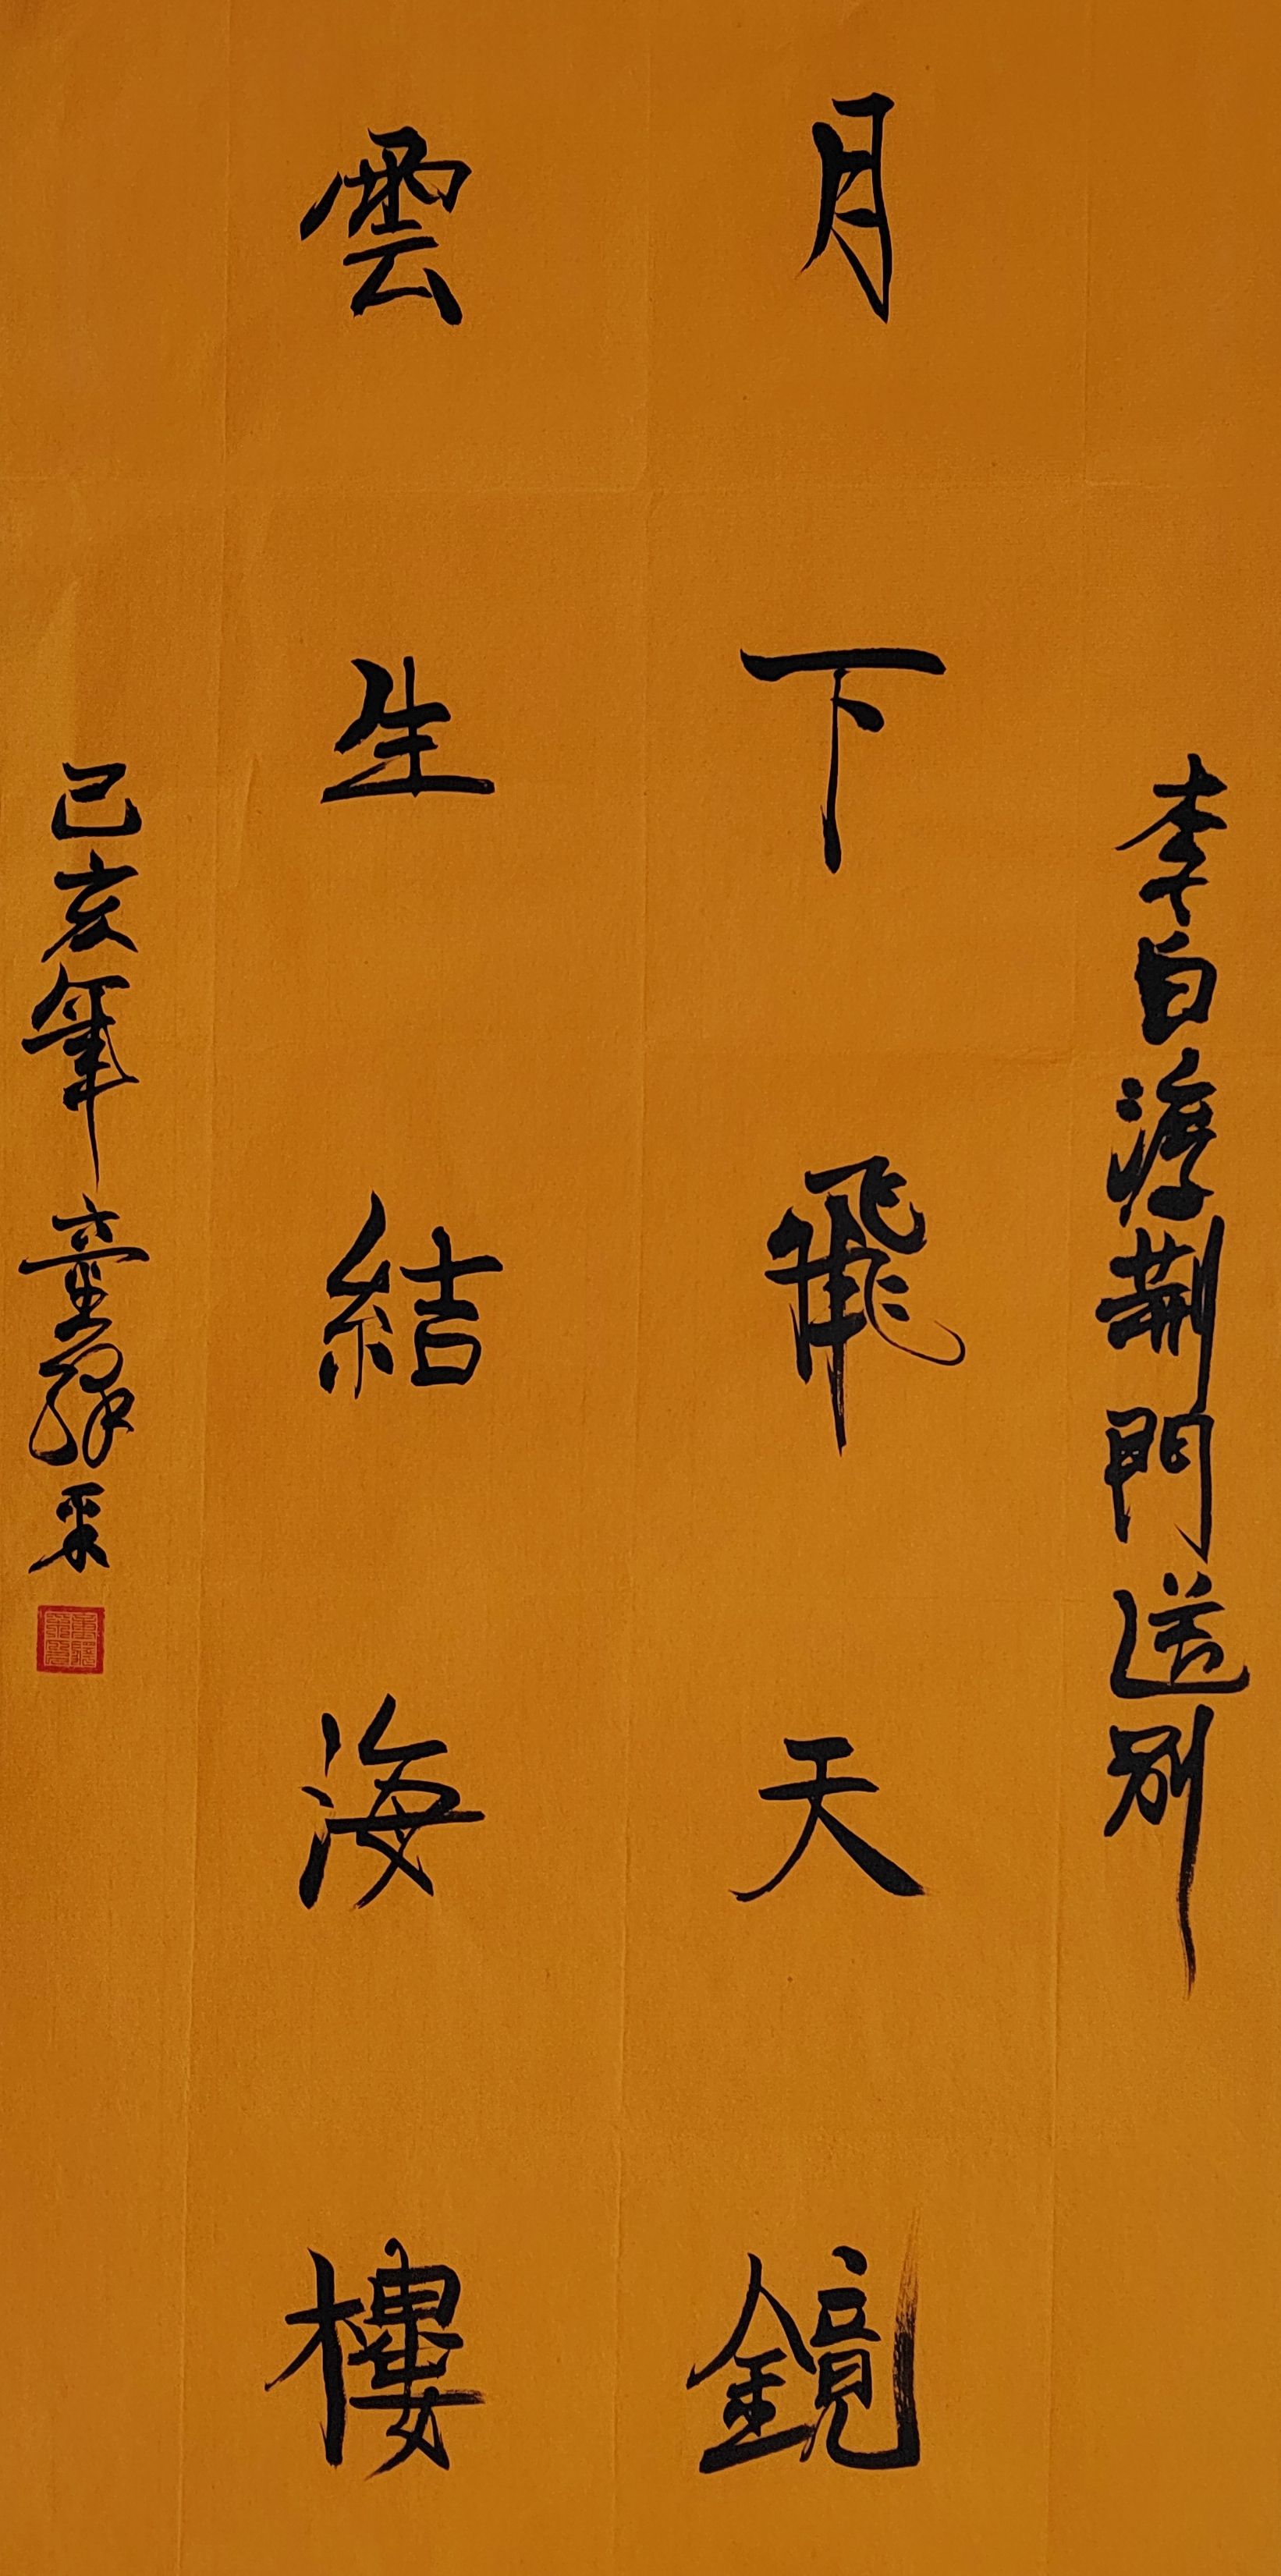 李白渡荆門送别
月下飛天鏡
雲生結海樓
己亥年 童采